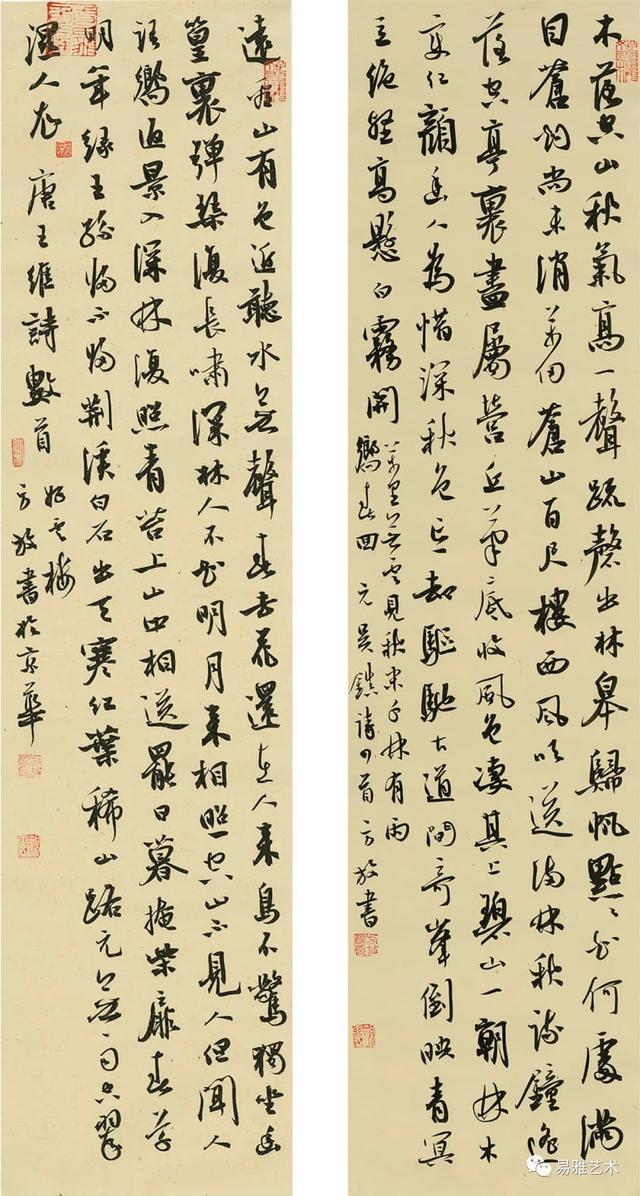 木落空山秋氣高一聲疏磬出林皋歸帆點點知何處滿
目蒼煙尚未消萬仞蒼山百尺樓西風吹送滿林秋疏鐘遙
落空亭裏盡屬營丘筆底收風色淒其上碧山一朝林木
變紅顏幽人為惜深秋色亡卻驅馳古道間奇峯倒映青冥
立絕壁高懸白霧開萬里無雲見秋來千林有雨
嚮春回元吳鎮詩四首方放書
遠看山有色近聽水無聲春去花還在人來鳥不驚獨坐幽
篁裏彈琴復長嘯深林人不知明月來相照空山不見人但聞人
語響返景入深林復照青苔上山中相送罷日暮掩柴扉春草
明年綠王孫歸不歸荆溪白石出天寒紅葉稀山路元無雨空翠
濕人衣唐王維詩數首好雲樓
方放書於京華
易雅艺术